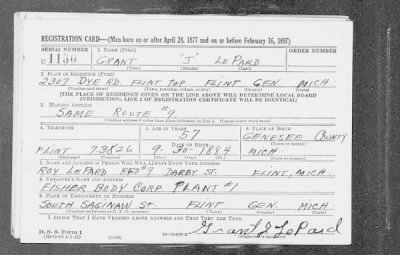 REGISTRATION CARD—(Men born on or after April 28, 1877 and on or before February 16, 1897)
SERIAL NUMBER 1. NAME (Print) ORDER NUMBER
U 1156 GRANT "J" LePARD
(First) (Middle) (Last)
2. PLACE OF RESIDENCE (Print)
2307 DYE RD. FLINT TWP. FLINT GEN. MICH
(Number and street) (Town, township, village, or city) (County) (State)
[THE PLACE OF RESIDENCE GIVEN ON THE LINE ABOVE WILL DETERMINE LOCAL BOARD
JURISDICTION; LINE 2 OF REGISTRATION CERTIFICATE WILL BE IDENTICAL]
3. MAILING ADDRESS
SAME ROUTE #9
[Mailing address if other than place indicated on line 2. If same insert word same]
4. TELEPHONE 5. AGE IN YEARS 6. PLACE OF BIRTH
57 GENESEE COUNTY
DATE OF BIRTH (Town or county)
FLINT 73826 9-30-1884 MICH
(Exchange) (Number) (Mo.) (Day) (Yr.) (State or country)
7. NAME AND ADDRESS OF PERSON WHO WILL ALWAYS KNOW YOUR ADDRESS
ROY LePARD RFD #9 DARBY ST. FLINT, MICH.
8. EMPLOYER'S NAME AND ADDRESS
FISHER BODY CORP. PLANT #1
9. PLACE OF EMPLOYMENT OR BUSINESS
SOUTH SAGINAW ST. FLINT GEN. MICH
(Number and street or R. F. D. number) (Town) (County) (State)
I AFFIRM THAT I HAVE VERIFIED ABOVE ANSWERS AND THAT THEY ARE TRUE.
D. S. S. Form 1 Grant J LePard
(Registrant's signature)